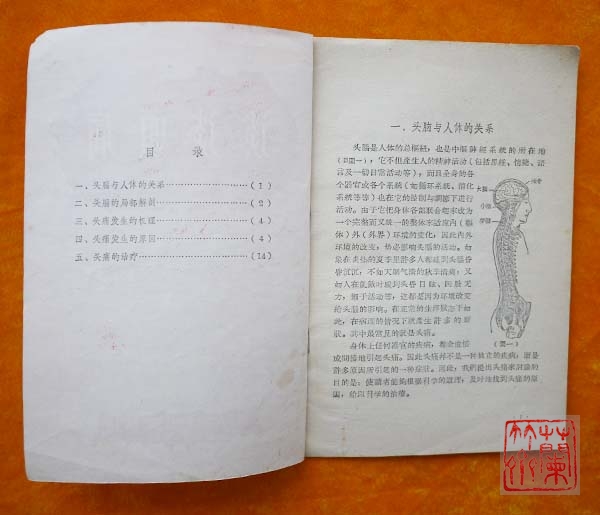 目 录
一、头脑与人体的关系……………………(1)
二、头脑的局部解剖……………………(2)
三、头痛发生的机理……………………(4)
四、头痛发生的原因……………………(4)
五、头痛的治疗…………………………(14)
一、头脑与人体的关系
头脑是人体的总枢纽，也是中枢神经系统的所在地
(见图一)，它不但产生人的精神活动(包括思维、情绪、语
言及一切日常活动等)，而且全身的各
个器官或各个系统(如循环系统、消化
系统等等)也在它的控制与调节下进行
活动。由于它把身体各部联合起来成为
一个完整而又统一的整体来适应内(躯
体)外(外界)环境的变化，因此内外
环境的改变，势必影响头脑的活动。如
果在炎热的夏季里许多人都感到头昏
昏沉沉，不如天朗气清的秋季清爽；又
如人在饥饿时感到头昏目眩、四肢无
力，懒于活动等，这都是因为环境改变
给头脑的影响。在正常的生理状态下如
此，在病理的情况下就产生许多的症
状。其中最常见的就是头痛。
身体上任何器官的疾病，都会直接
或间接地引起头痛。因此头痛并不是一种独立的疾病，而是
许多原因所引起的一种症状。因此，我们提出头痛来讨论的
目的是：使读者能够根据科学的道理，及时地找到头痛的原
因，给以科学的治疗。
大脑
小脑
脊髓
(图一)
蘭
竹